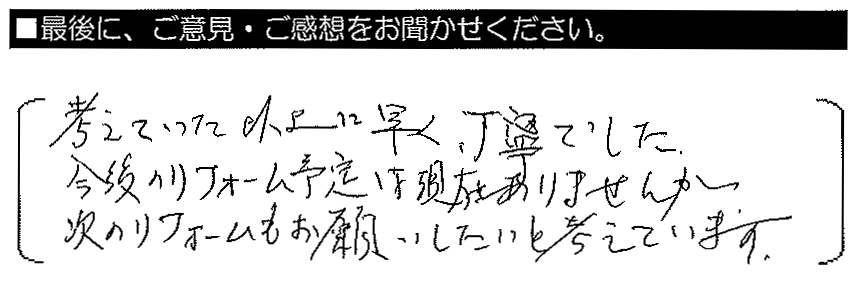 ■最後に、ご意見・ご感想をお聞かせください。
考えていった以上に早く、丁寧でした。
今後のリフォーム予定は現在ありませんが、
次のリフォームもお願いしたいと考えています。